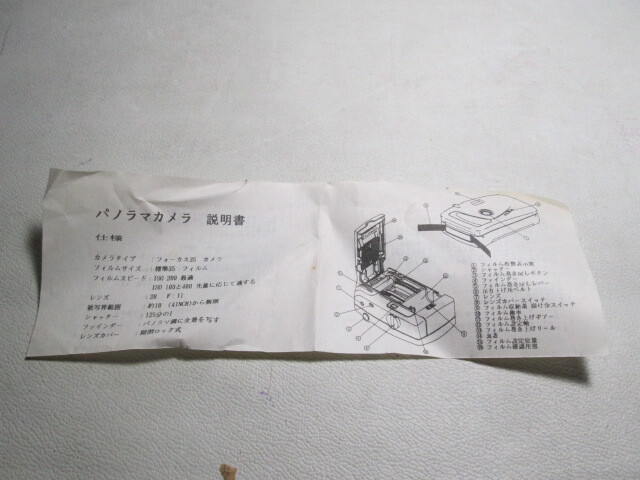 パノラマカメラ 説明書
仕様
カメラタイプ :フォーカス35 カメラ
フィルムサイズ :標準35 フィルム
フィルムスピード:100 200 最適
100 100と400 光量に応じて適する
レンズ :28 F:11
被写界範囲 :約1M (41NCH)から無限
シャッター :125分の1
ファインダー :パノラマ調に全景を写す
レンズカバー :開閉ロック式
① フィルム枚数表示窓
② シャッター
③ フィルム巻き戻しボタン
④ ファインダー
⑤ フィルム巻き戻しレバー
⑥ 吊り下げ用ベルト
⑦ レンズ
⑧ レンズカバースイッチ
⑨ フィルム収納蓋 開け分スイッチ
フィルム巻き上げギアー
フィルム設定軸
フィルム巻き上げリール
裏蓋
フィルム設定位置
フィルム確認用窓